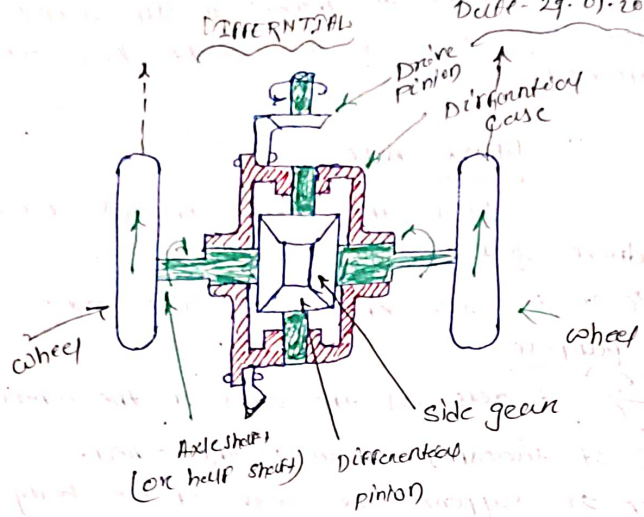 DIFFERNTIAL
Date- 29.01.20
Drive
pinion
Differential
case
wheel
wheel
side gear
Axle shaft
(or half shaft)
Differential
pinion